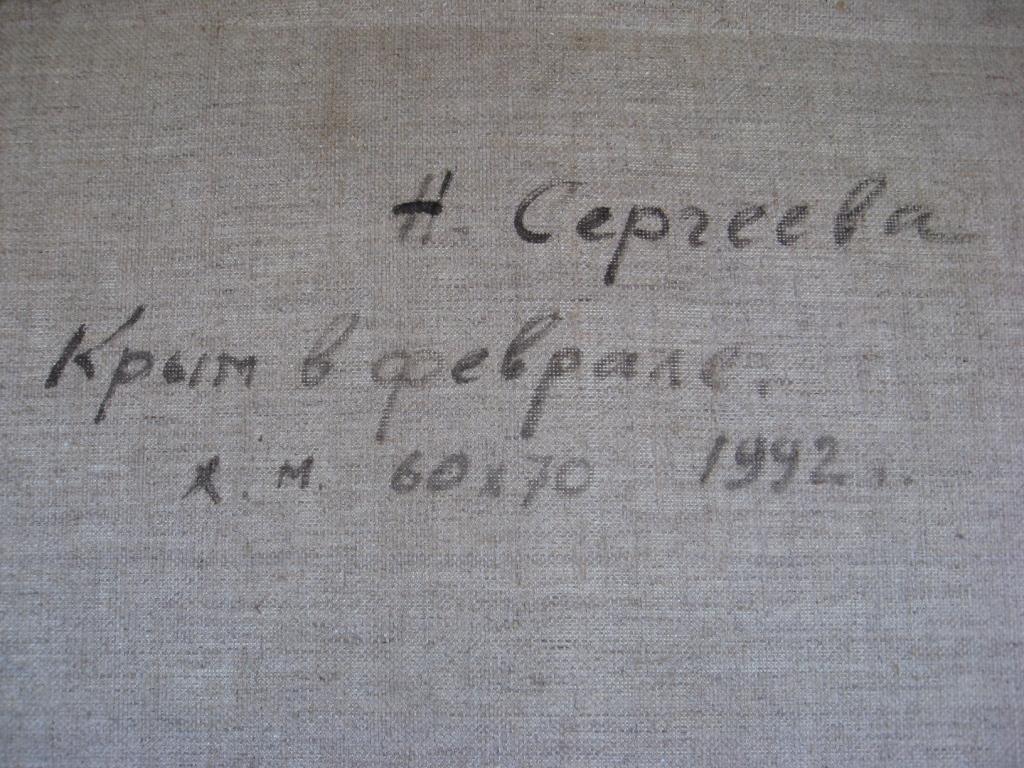 Н. Сергеева
Крым в феврале.
х. м. 60х70 1992 г.